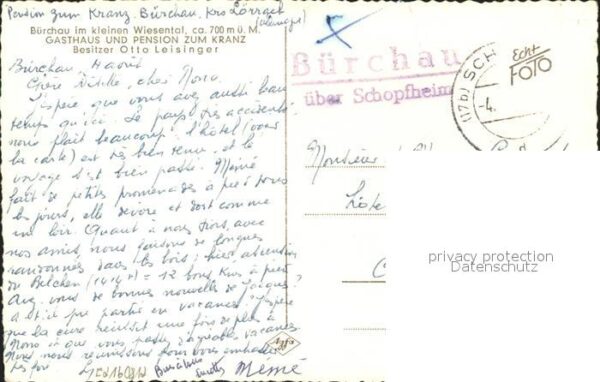 Pension zum Kranz. Bürchau. Krs Lörrach
Bürchau im kleinen Wiesental, ca. 700 m ü. M.
GASTHAUS UND PENSION ZUM KRANZ
Besitzer Otto Leisinger
Bürchau,
chers Nonu.
J'espère que vous avez aussi beau
temps qu'ici. Le pays très accidenté
nous plaît beaucoup. l'hôtel (voir
la carte) est très bien tenu, et le
voyage s'est bien passé. Mémé
fait de petites promenades à pied tous
les jours, elle dévore et dort comme
un loir. Quant à nous trois, avec
nos amis, nous faisons de longues
randonnées dans les bois; hier, ascension
du Belchen (1414 m) = 12 bons Kms à pied
Avez-vous de bonnes nouvelles de Jacques?
a-t-il pu partir en vacances? J'espère
que la cure réussit une fois de plus à
Nonu et que vous passez d'agréables vacances.
Nous nous réunissons tous pour embrasser
Mémé
Bürchau
über Schopfheim
(17b) SCH
-4.
Echt
FOTO
Monsieur et
Agfa
privacy protection
Datenschutz